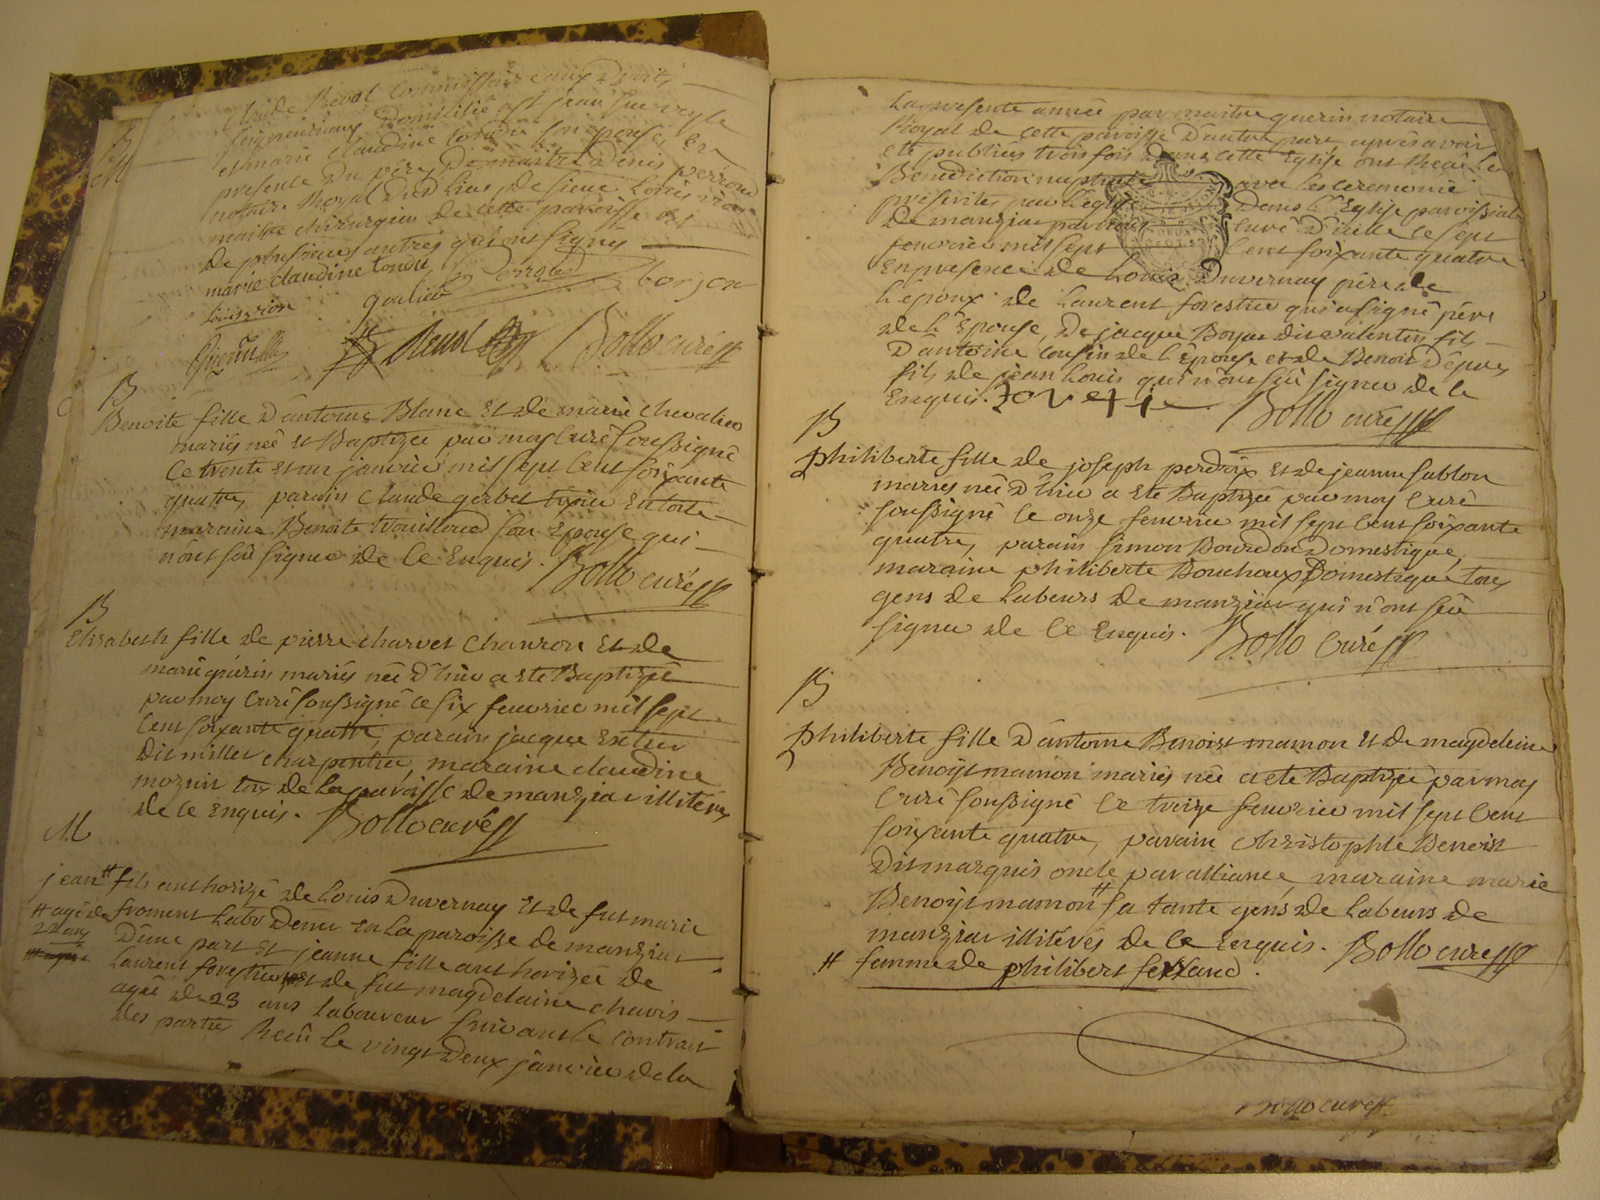 Claude Revol Commissaire aux droits
seigneuriaux
et marie claudine
presente du père, De maitre denis perroud
notaire Royal Dud lieu, de sieur Louis vion
maitre chirurgien de cette paroisse et
de plusieurs autres qui ont signés
marie claudine tondu
louis vion
borjon
Revol Bollo curé
B
Benoite fille D'antoine Blanc Et de marie chevalier
mariés née et Baptizée par moy Curé soussigné
Ce trente et un janvier mil sept Cent soixante
quatre, parain Claude gerbet
maraine Benoite son Epouse qui
n'ont sçu signer de Ce Enquis. Bollo curé
B
Elisabeth fille de pierre charvet Charron Et de
marie guerin mariés née d'hier a ete Baptizée
par moy Curé soussigné Ce six fevrier mil sept
Cent soixante quatre, parain jacque
Dit millet charpentier, maraine claudine
mozuir tous de la paroisse de manziat illitérés
de Ce Enquis. Bollo curé
M
jean # fils authorizé de Louis Duvernay Et de fut marie
# agé de froment Labr Demt En La paroisse de manziat
22 ans D'une part Et jeanne fille authorizée de
Laurent forestier et de fut magdelaine chavis
agée de 23 ans laboureur suivant le Contrait
des partie Recû le vingt Deux janvier de la
La presente année par maitre guerin notaire
Royal de cette paroisse D'autre part apres avoir
eté publiés trois fois dans cette Eglise ont Recû la
Benediction nuptiale avec les ceremonie
présentes par l'Eglise Dans l'Eglise paroissiale
de manziat par nous Curé D'icelle Ce sept
fevrier mil sept Cent soixante quatre
En presence de Louis Duvernay père de
L'époux de Laurent forestier qui a signé père
de L'Epouse, De jacque Boyat dit valentin fils
D'antoine Cousin de l'Epouse et de Benoit Dépres
fils de jean Louis qui n'ont sçu signer de Ce
Enquis. Bollo curé
B
philiberte fille de joseph perdrix Et de jeanne sublon
mariés née D'hier a Ete Baptizée par moy Curé
soussigné Ce onze fevrier mil sept Cent soixante
quatre, parain simon Bourdon Domestique,
maraine philiberte Bouchoux Domestique tous
gens de Labeurs de manziat qui n'ont sçû
signer de Ce Enquis. Bollo Curé
B
philiberte fille D'antoine Benoist mamon Et de magdeleine
Benoist mamon mariés née a ete Baptizée par moy
Curé soussigné Ce treize fevrier mil sept Cent
soixante quatre, parain Christophle Benoist
Dit marquis oncle par alliance, maraine marie
Benoist mamon # sa tante gens de Labeurs de
manziat illitérés de Ce Enquis. Bollo curé
# femme de philibert ferrand.
Bollo curé